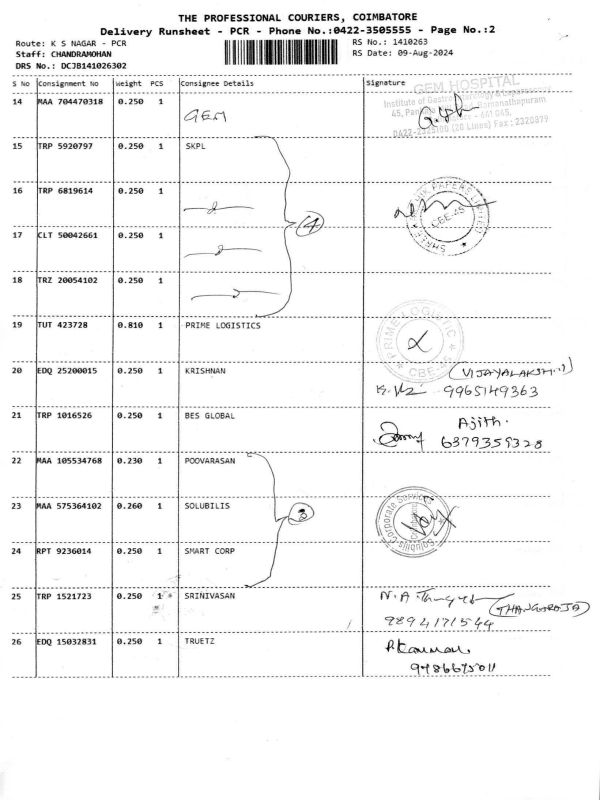 THE PROFESSIONAL COURIERS, COIMBATORE
Delivery Runsheet - PCR - Phone No.:0422-3505555 - Page No.:2
Route: K S NAGAR - PCR RS No.: 1410263
Staff: CHANDRAMOHAN RS Date: 09-Aug-2024
DRS No.: DCJB141026302
S No Consignment No Weight PCS Consignee Details Signature
GEM HOSPITAL
14 MAA 704470318 0.250 1 GEM
Institute of
45, Ramanathapuram
641 045,
0422- (20 Lines) Fax : 2320879
15 TRP 5920797 0.250 1 SKPL
16 TRP 6819614 0.250 1
4
CBE-45
17 CLT 50042661 0.250 1
18 TRZ 20054102 0.250 1
19 TUT 423728 0.810 1 PRIME LOGISTICS
PRIME LOGISTIC
CBE-45
20 EDQ 25200015 0.250 1 KRISHNAN
9965149363
21 TRP 1016526 0.250 1 BES GLOBAL Ajith.
6379359328
22 MAA 105534768 0.230 1 POOVARASAN
23 MAA 575364102 0.260 1 SOLUBILIS
3
Solubilis Corporate Services
24 RPT 9236014 0.250 1 SMART CORP
25 TRP 1521723 0.250 1 SRINIVASAN
(THANGARAJA)
9894171544
26 EDQ 15032831 0.250 1 TRUETZ
9486675011